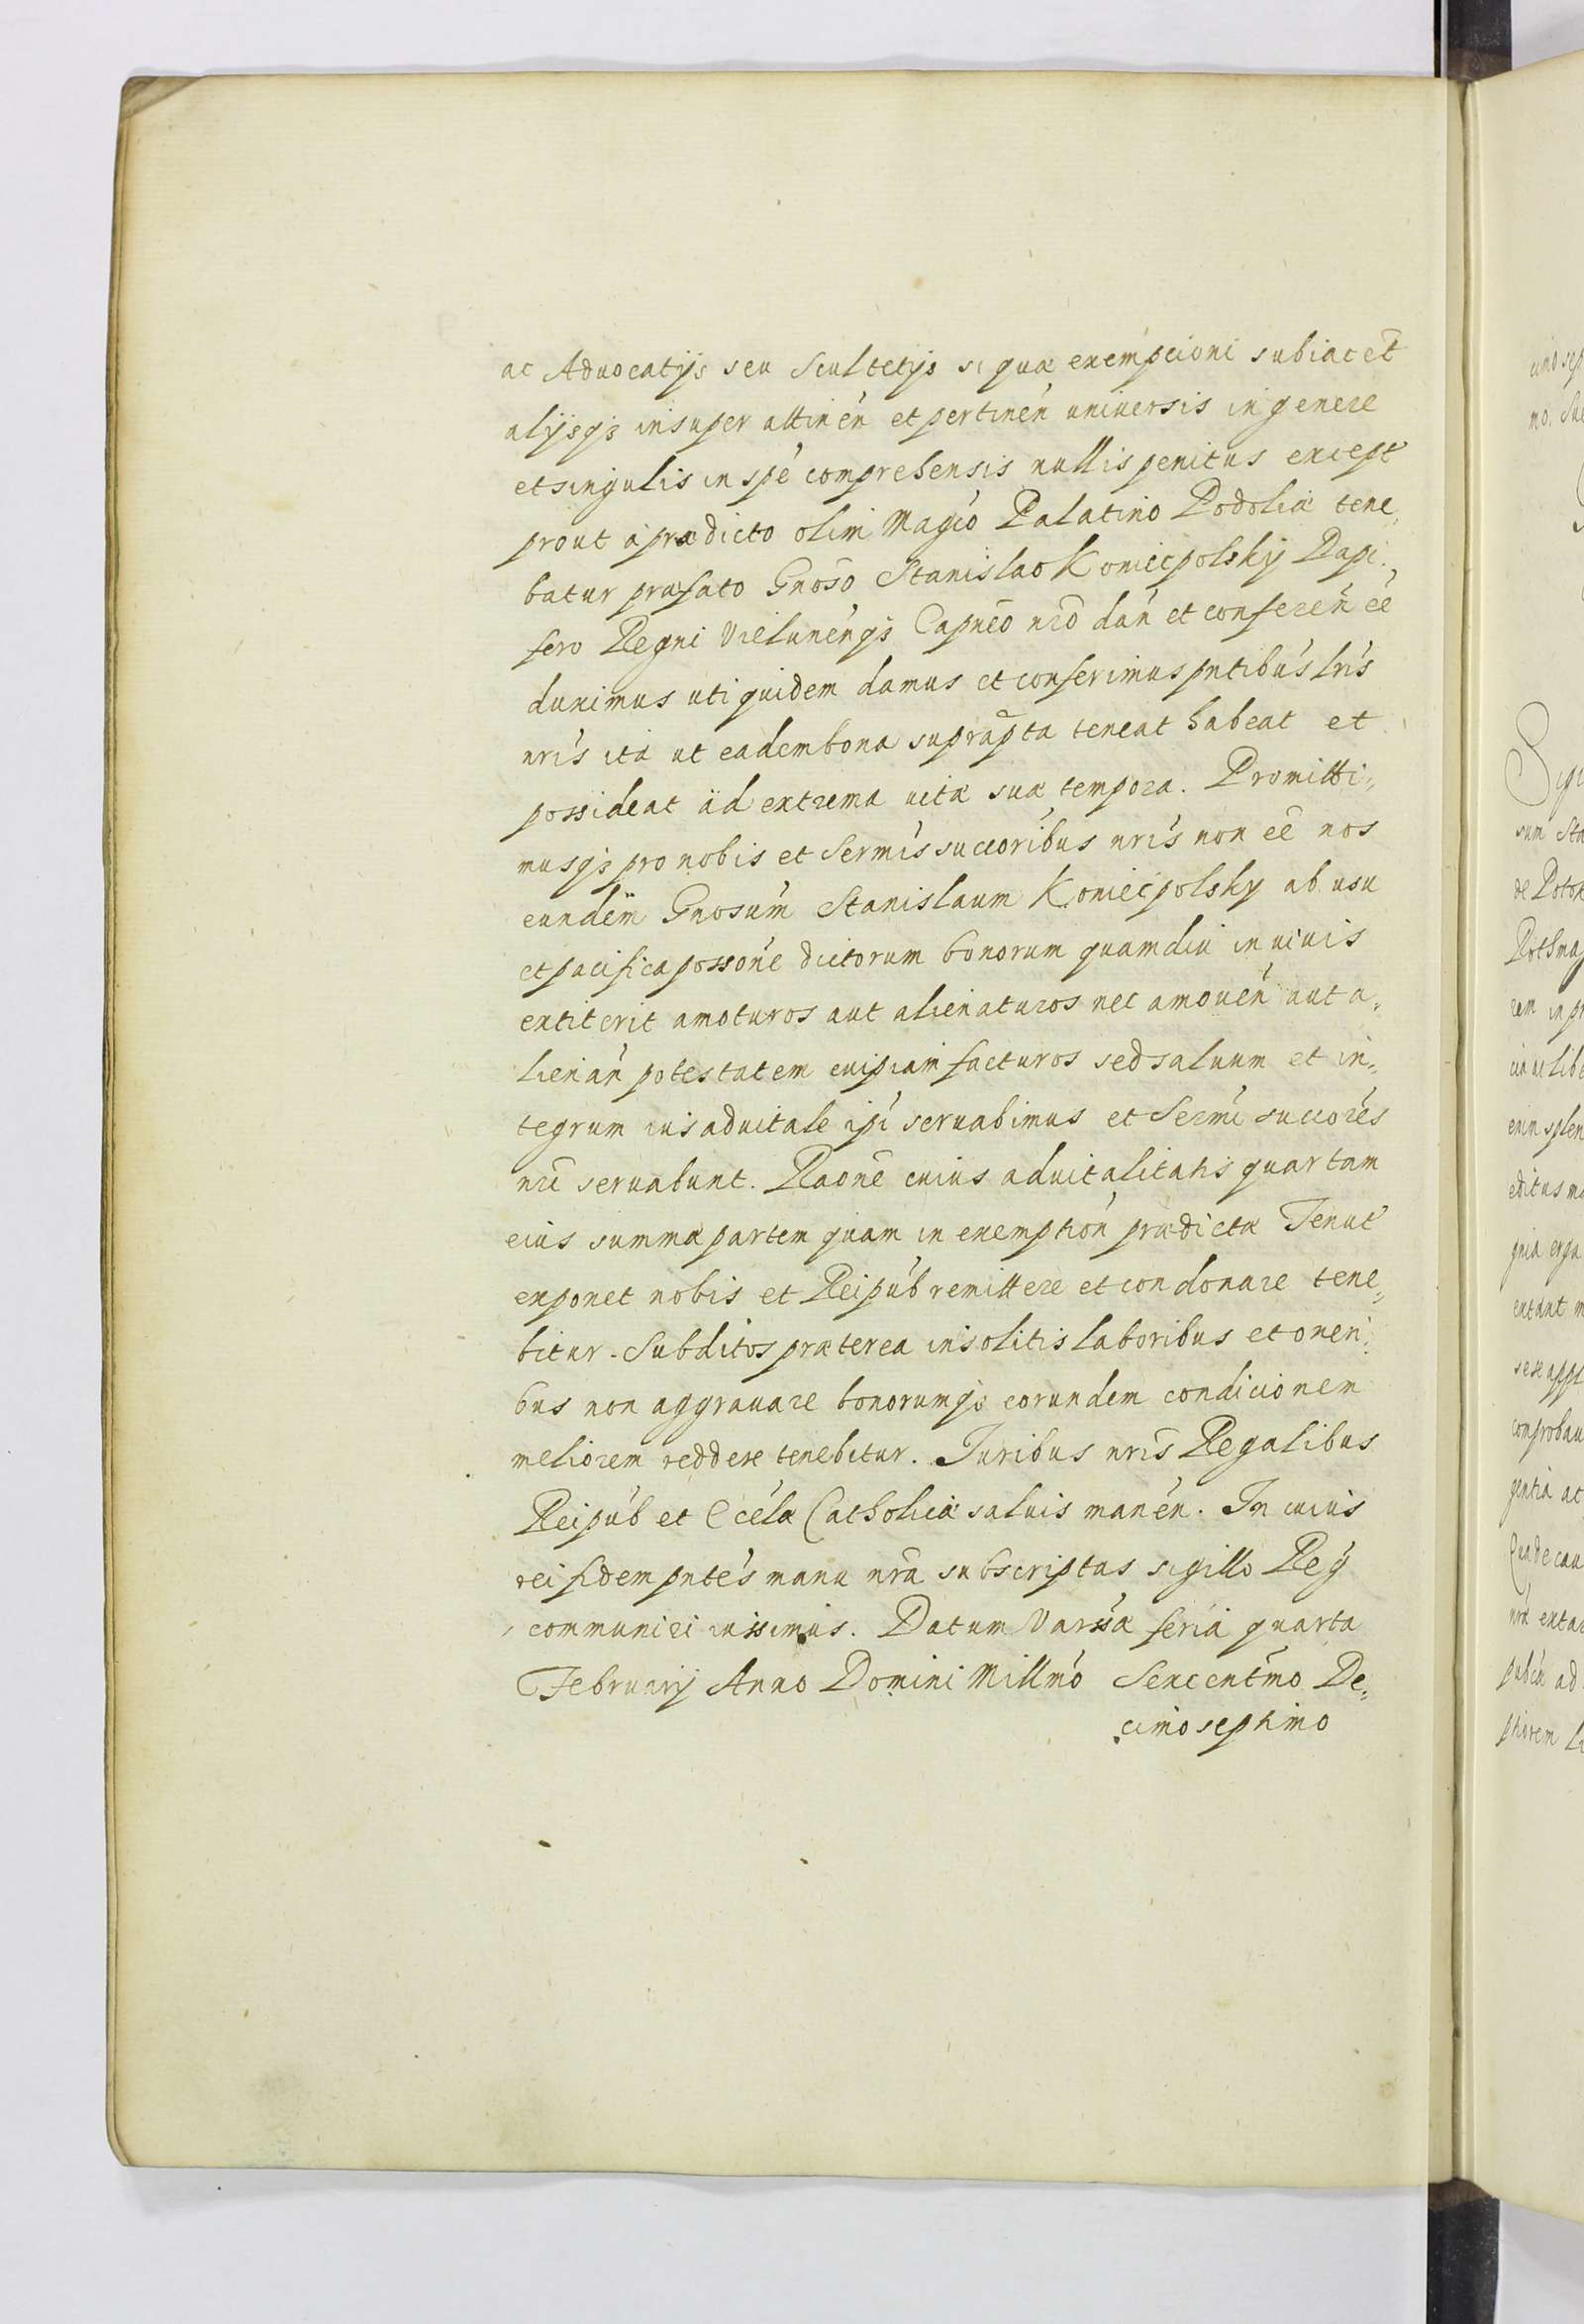 ac Advocatijs seu Scultetijs si quæ exempcioni subiacēt
alijsqз insuper attinēn et pertinēn universis in genere
et singulis in spē comprehensis nullis penitus except
prout a prædicto olim Magco Palatino Podoliæ tene„
batur præfato Gnōso Stanislao Koniecpolskÿ Dapi„
fero Regni Vielunēnqз Capnēo nrō dan et conferēn ēē
duximus uti quidem damus et conferimus pntibus lris
nris ita ut eadem bona suprāpta teneat habeat et
possideat ad extrema vitæ suæ tempora. Promitti„
musqз pro nobis et Sermis succoribus nris non ēē nos
eundēm Gnosum Stanislaum Koniecpolsky ab usu
et pacifica possone dictorum bonorum quamdiu in vivis
extiterit amoturos aut alienaturos nec amovēn aut a„
lienān potestatem cuipiam facturos sed saluum et in„
tegrum ius aduitale ipi servabimus et Sermi succores
nri servabunt. Raone cuius aduitalitatis quartam
eius summæ partem quam in exemption prædictæ Tenut
exponet nobis et Reipub remittere et condonare tene„
bitur. Subditos præterea insolitis laboribus et oneri„
bus non aggravare bonorumqз eorundem condicionem
meliorem reddere tenebitur. Juribus nris Regalibus
Reipub et Eccla Catholicæ salvis manēn. In cuius
rei fidem pntes manu nra subscriptas sigillo Reg
communiri iussimus. Datum Varsæ feria quarta
Februarij Anno Domini Millmo Sexcentmo De„
cimo septimo
cund sep
mo. Sue
Sigi
sum Sta
de Potok
Rothma
ram in pr
cia ac libe
enim splen
editus ma
gnia erga
extant m
sese appl
comprobau
gentia at
Quade cau
nra extar
publica ad
ptiorem